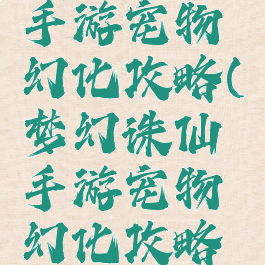 手游宠物
幻化攻略(
梦幻诛仙
手游宠物
幻化攻略